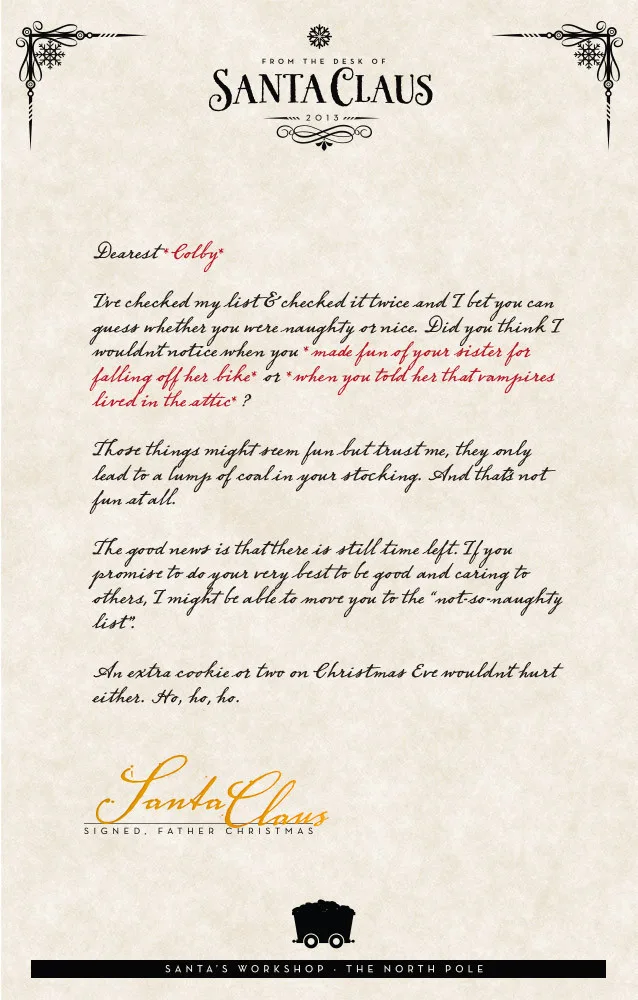 FROM THE DESK OF
SANTA CLAUS
2013
Dearest *Colby*
I've checked my list & checked it twice and I bet you can
guess whether you were naughty or nice. Did you think I
wouldn't notice when you *made fun of your sister for
falling off her bike* or *when you told her that vampires
lived in the attic* ?
Those things might seem fun but trust me, they only
lead to a lump of coal in your stocking. And that's not
fun at all.
The good news is that there is still time left. If you
promise to do your very best to be good and caring to
others, I might be able to move you to the "not-so-naughty
list".
An extra cookie or two on Christmas Eve wouldn't hurt
either. Ho, ho, ho.
Santa Claus
SIGNED, FATHER CHRISTMAS
SANTA'S WORKSHOP · THE NORTH POLE